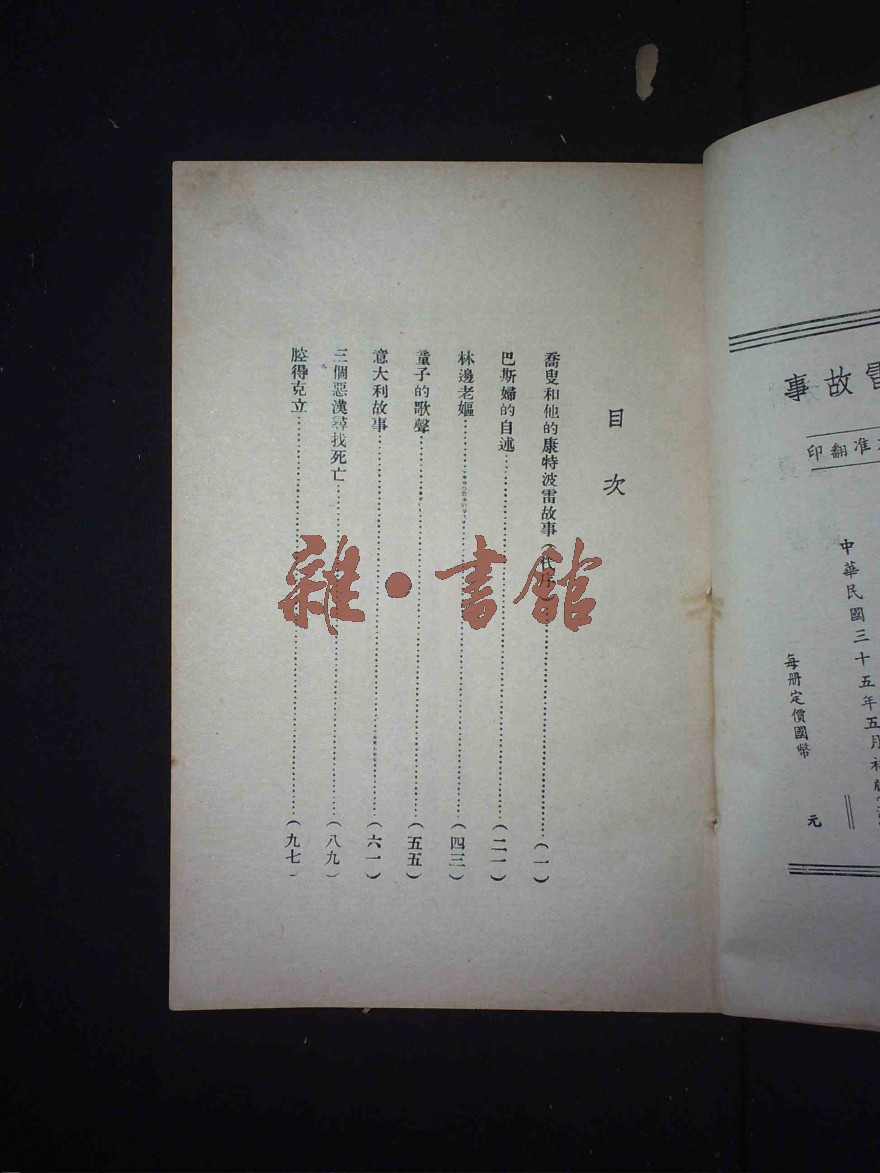 目次
喬叟和他的康特波雷故事(代序)……(一)
巴斯婦的自述……(二一)
林邊老嫗……(四三)
童子的歌聲……(五五)
意大利故事……(六一)
三個惡漢尋找死亡……(八九)
腔得克立……(九七)
雜·書館
雷故事
准翻印
中華民國三十五年五月初版
每册定價國幣 元